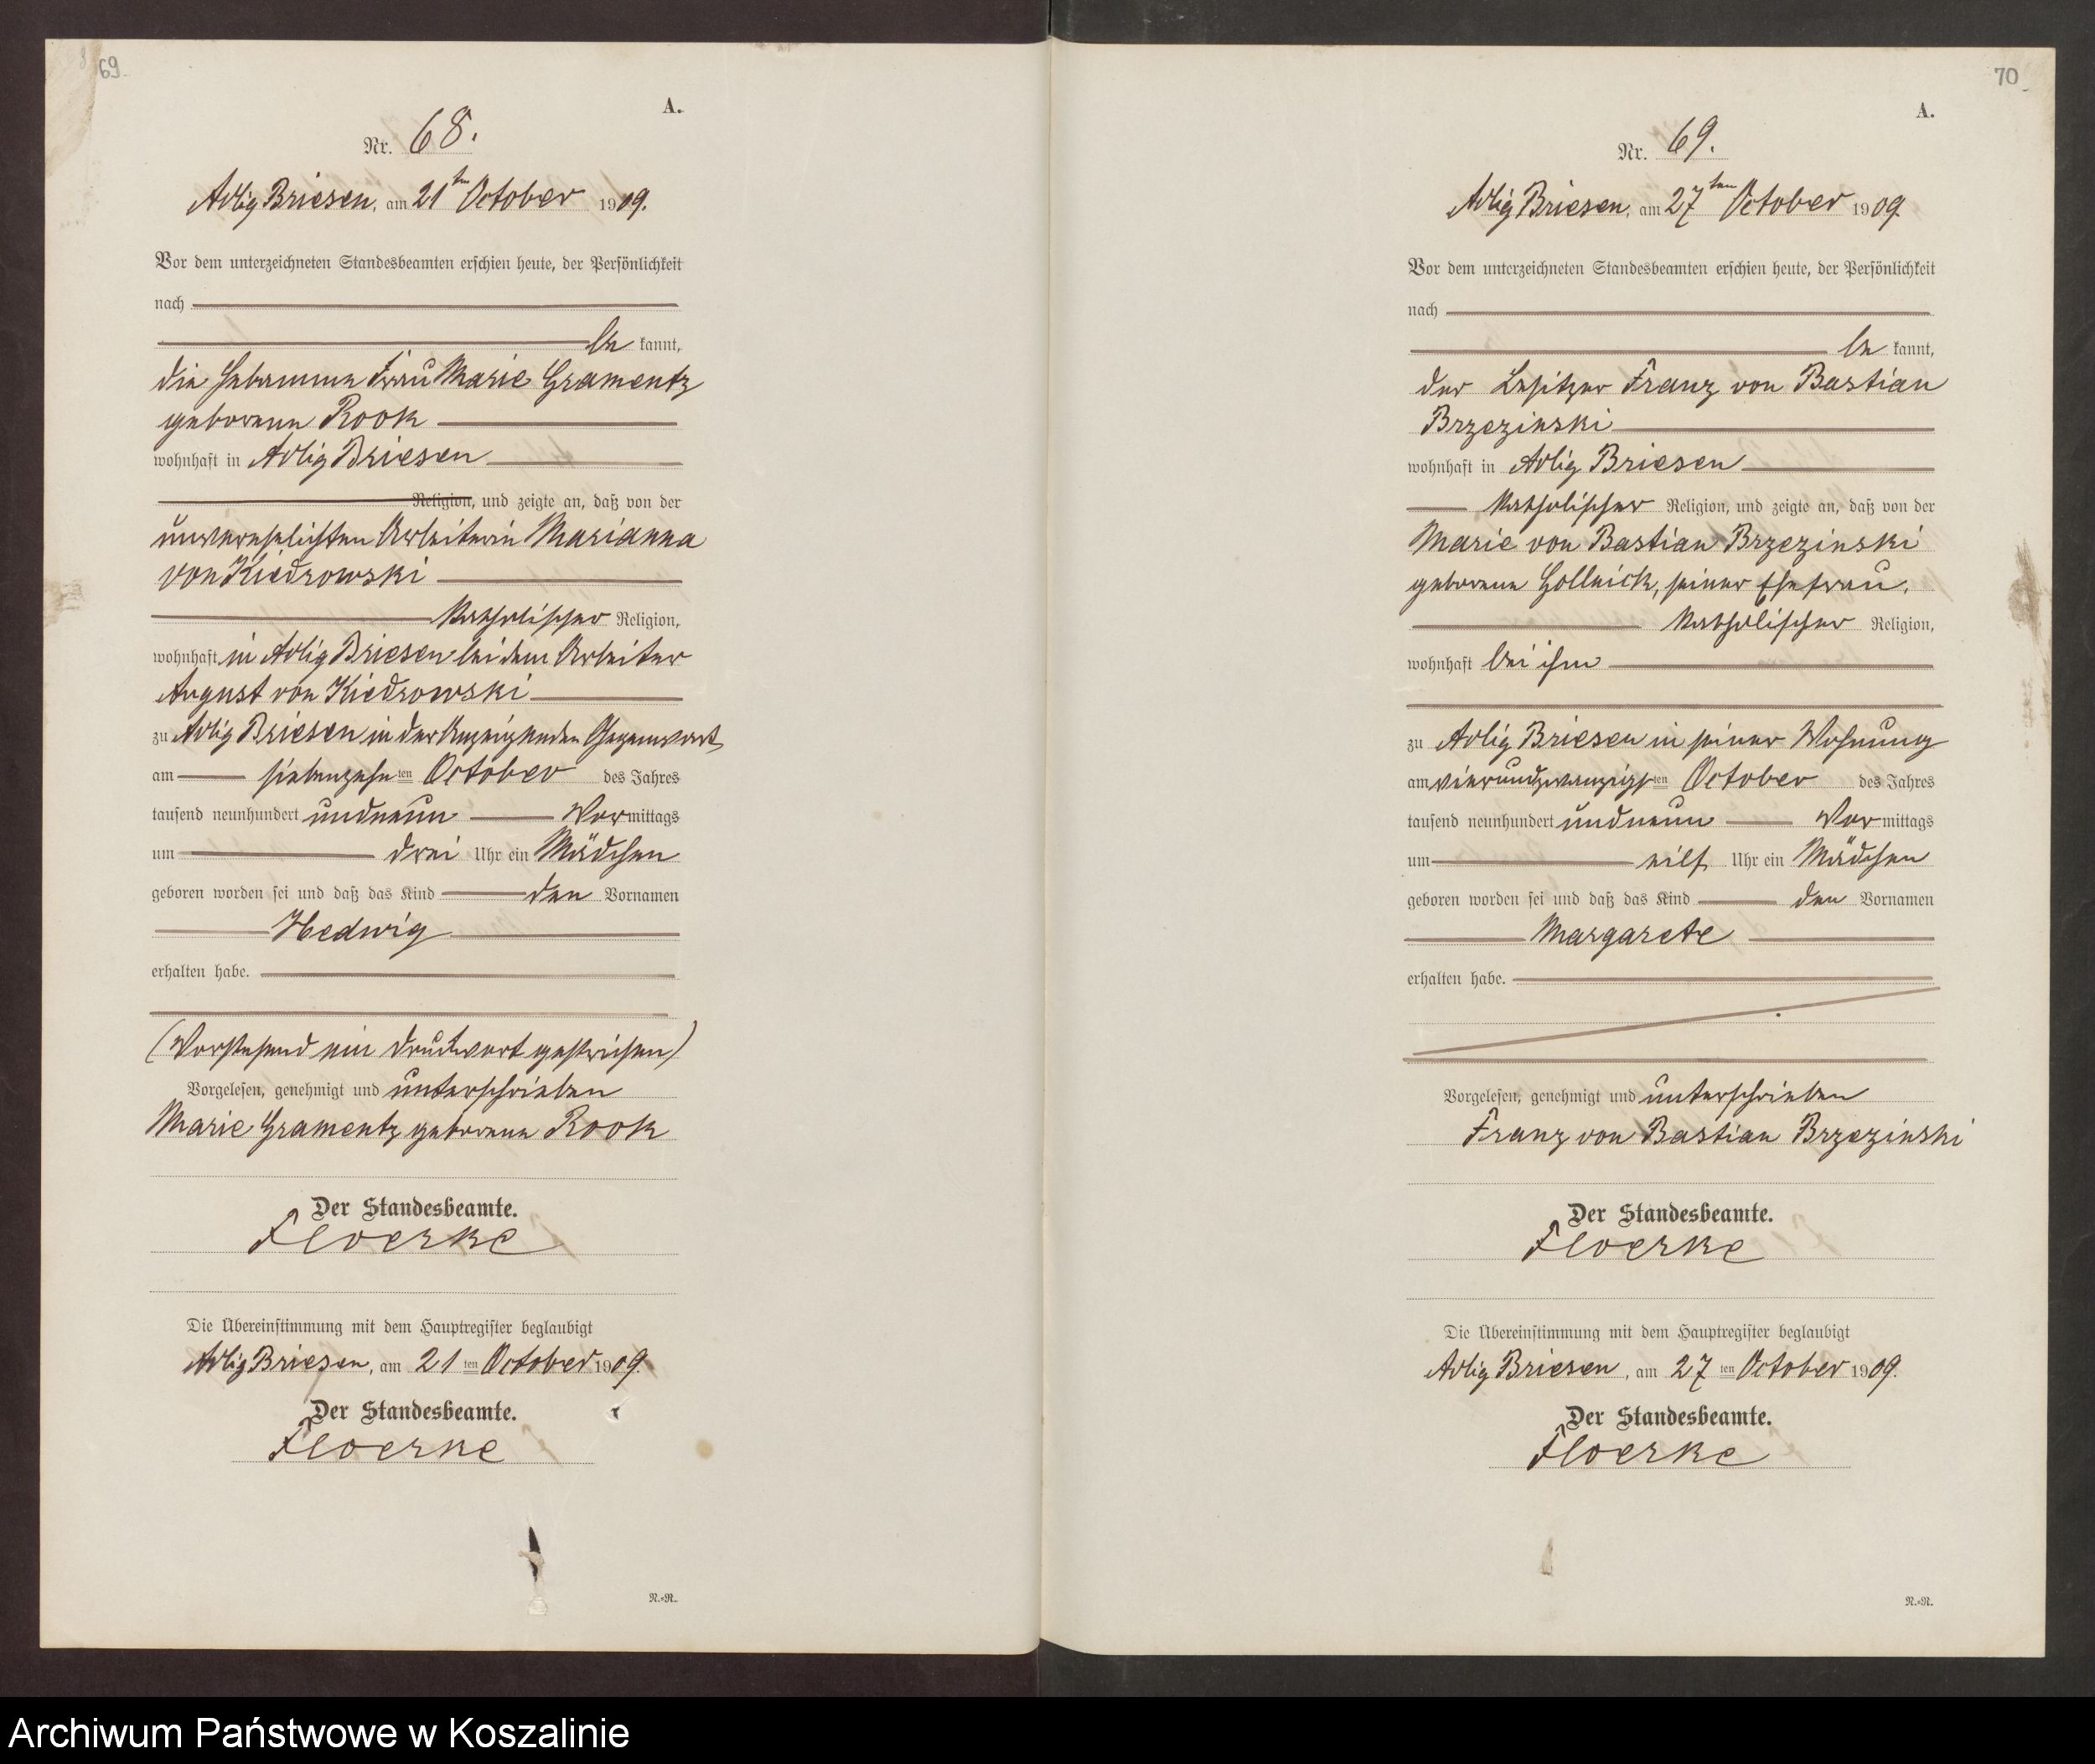 69.
A.
Nr. 68.
Adlig Briesen, am 21ten October 1909.
Vor dem unterzeichneten Standesbeamten erschien heute, der Persönlichkeit
nach
be kannt,
die Hebamme Frau Marie Gramentz
geborene Rook
wohnhaft in Adlig Briesen
Religion, und zeigte an, daß von der
unverehelichten Arbeiterin Marianna
von Kiedrowski
katholischer Religion,
wohnhaft in Adlig Briesen bei dem Arbeiter
August von Kiedrowski
zu Adlig Briesen in der Anzeigenden Gegenwart
am siebenzehnten October des Jahres
tausend neunhundert undneun Vormittags
um drei Uhr ein Mädchen
geboren worden sei und daß das Kind den Vornamen
Hedwig
erhalten habe.
(Vorstehend ein Druckwort gestrichen)
Vorgelesen, genehmigt und unterschrieben
Marie Gramentz geborene Rook
Der Standesbeamte.
Floerke
Die Übereinstimmung mit dem Hauptregister beglaubigt
Adlig Briesen, am 21ten October 1909.
Der Standesbeamte.
Floerke
N.=R.
70
A.
Nr. 69.
Adlig Briesen, am 27ten October 1909.
Vor dem unterzeichneten Standesbeamten erschien heute, der Persönlichkeit
nach
be kannt,
der Besitzer Franz von Bastian
Brzezinski
wohnhaft in Adlig Briesen
katholischer Religion, und zeigte an, daß von der
Marie von Bastian Brzezinski
geborene Gollnick, seiner Ehefrau,
katholischer Religion,
wohnhaft bei ihm
zu Adlig Briesen in seiner Wohnung
am vierundzwanzigsten October des Jahres
tausend neunhundert undneun Vormittags
um eilf Uhr ein Mädchen
geboren worden sei und daß das Kind den Vornamen
Margarete
erhalten habe.
Vorgelesen, genehmigt und unterschrieben
Franz von Bastian Brzezinski
Der Standesbeamte.
Floerke
Die Übereinstimmung mit dem Hauptregister beglaubigt
Adlig Briesen, am 27ten October 1909.
Der Standesbeamte.
Floerke
N.=R.
Archiwum Państwowe w Koszalinie